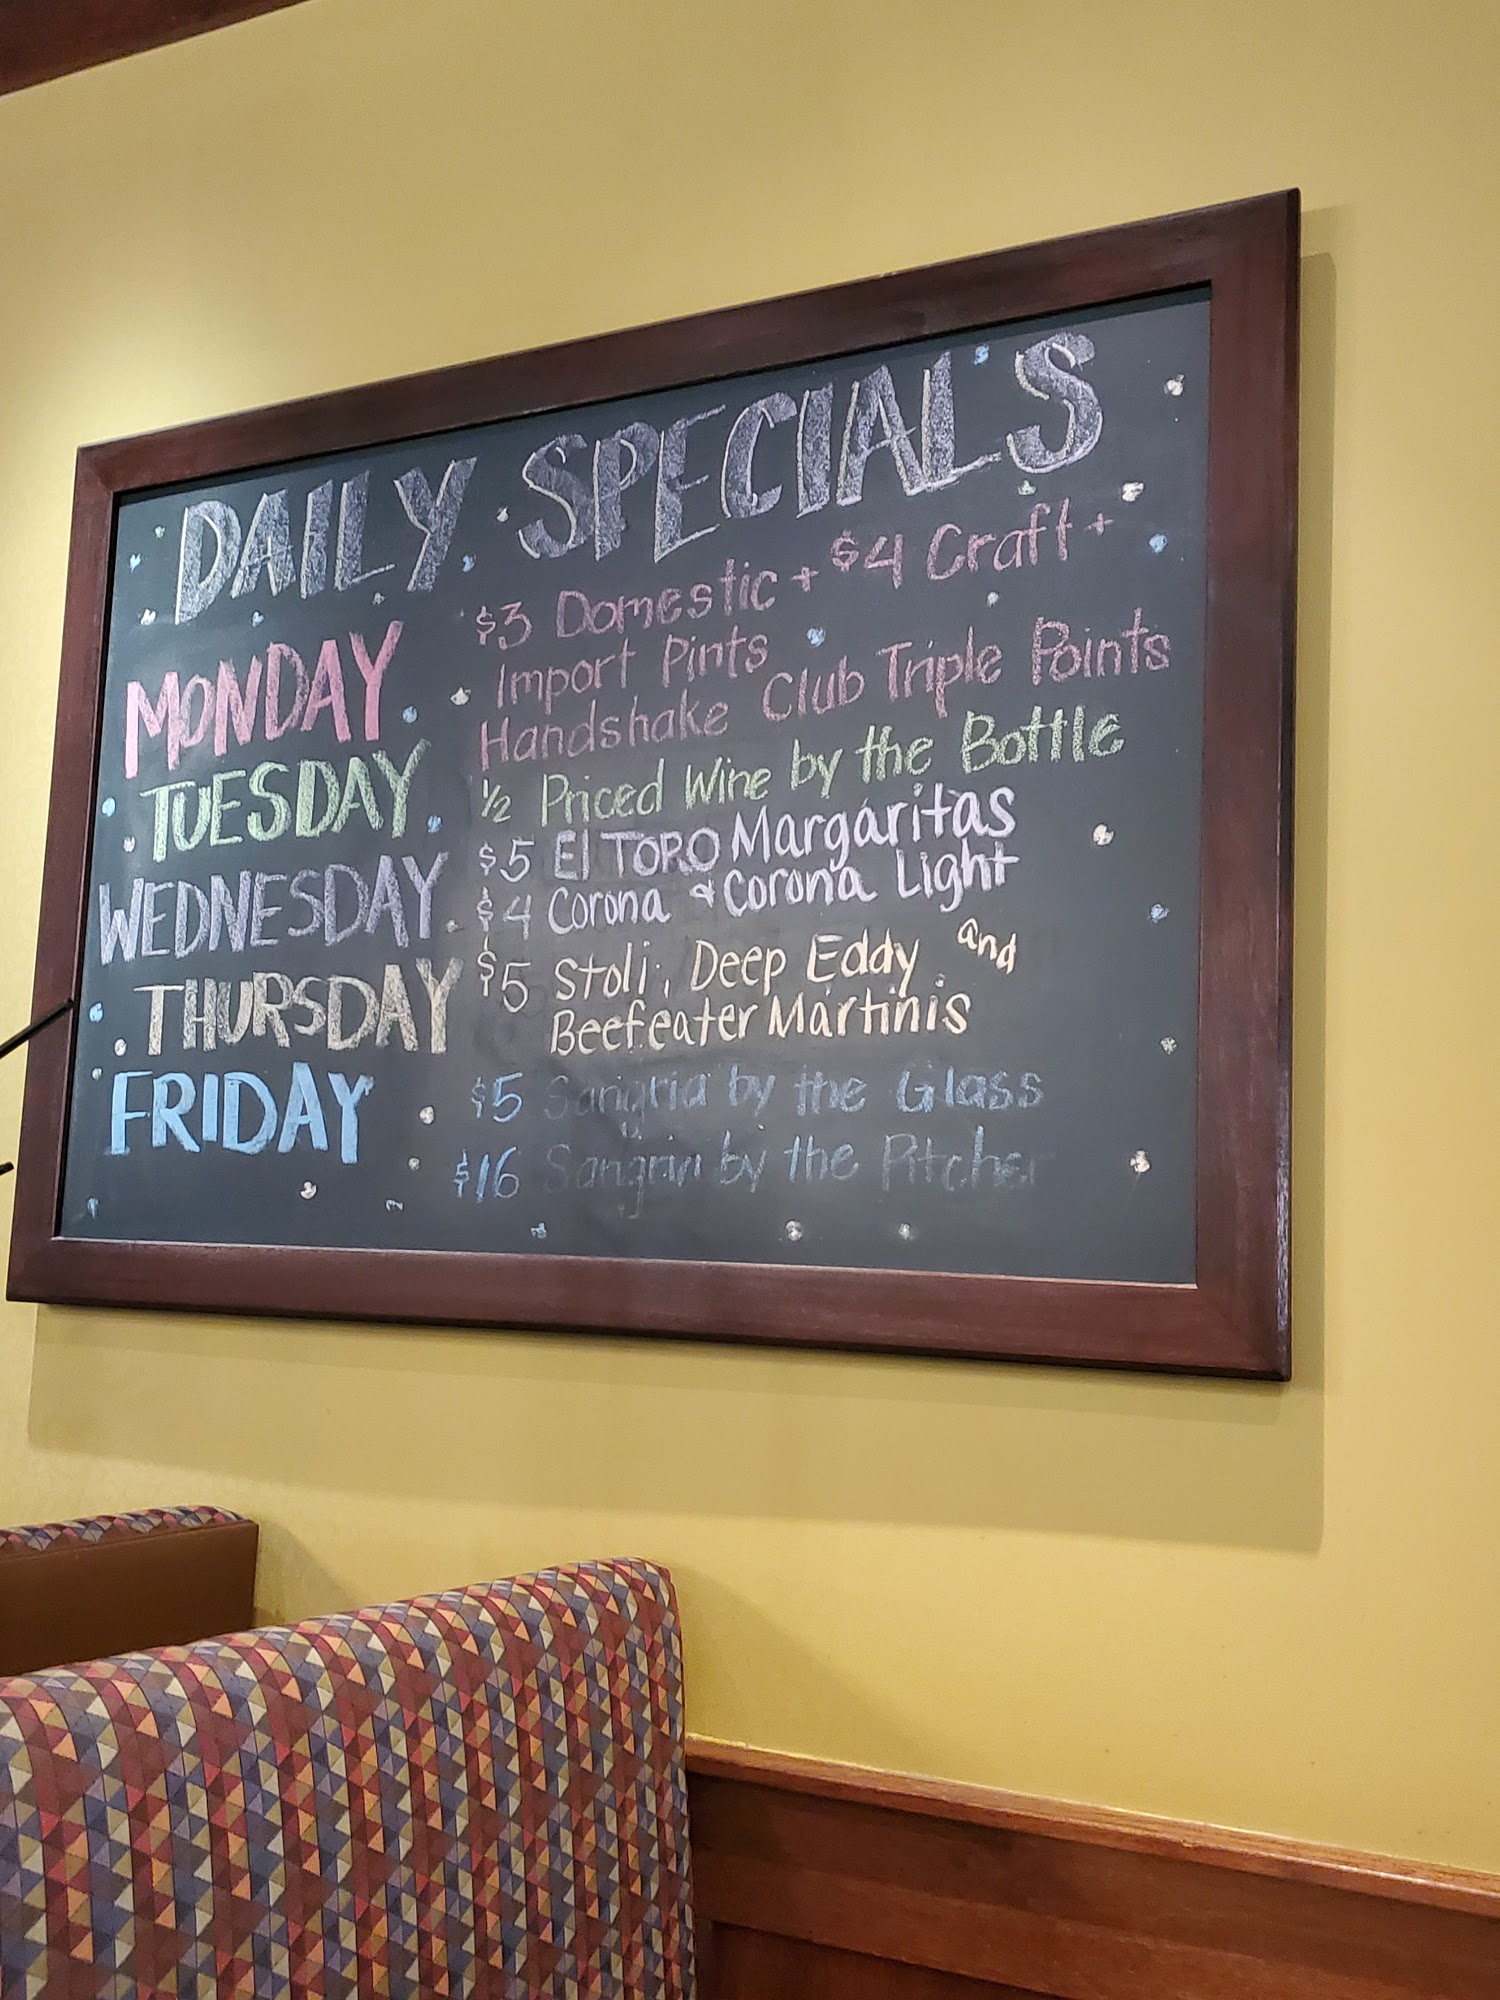 DAILY SPECIALS
MONDAY
$3 Domestic + $4 Craft +
Import Pints
Handshake Club Triple Points
TUESDAY
1/2 Priced Wine by the Bottle
WEDNESDAY
$5 El TORO Margaritas
$4 Corona & Corona Light
THURSDAY
$5 Stoli, Deep Eddy and
Beefeater Martinis
FRIDAY
$5 Sangria by the Glass
$16 Sangria by the Pitcher